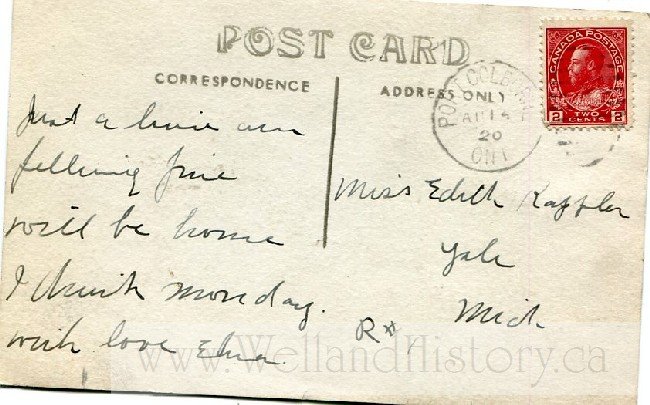 POST CARD
CORRESPONDENCE
ADDRESS ONLY
CANADA POSTAGE
2 TWO CENTS 2
PORT COLBORNE
AU 15
20
ONT
Just a line am
felling fine
will be home
I think monday.
with love Elva.
Miss Edith Kappler
Yale
Mich
R#1
www.WellandHistory.ca